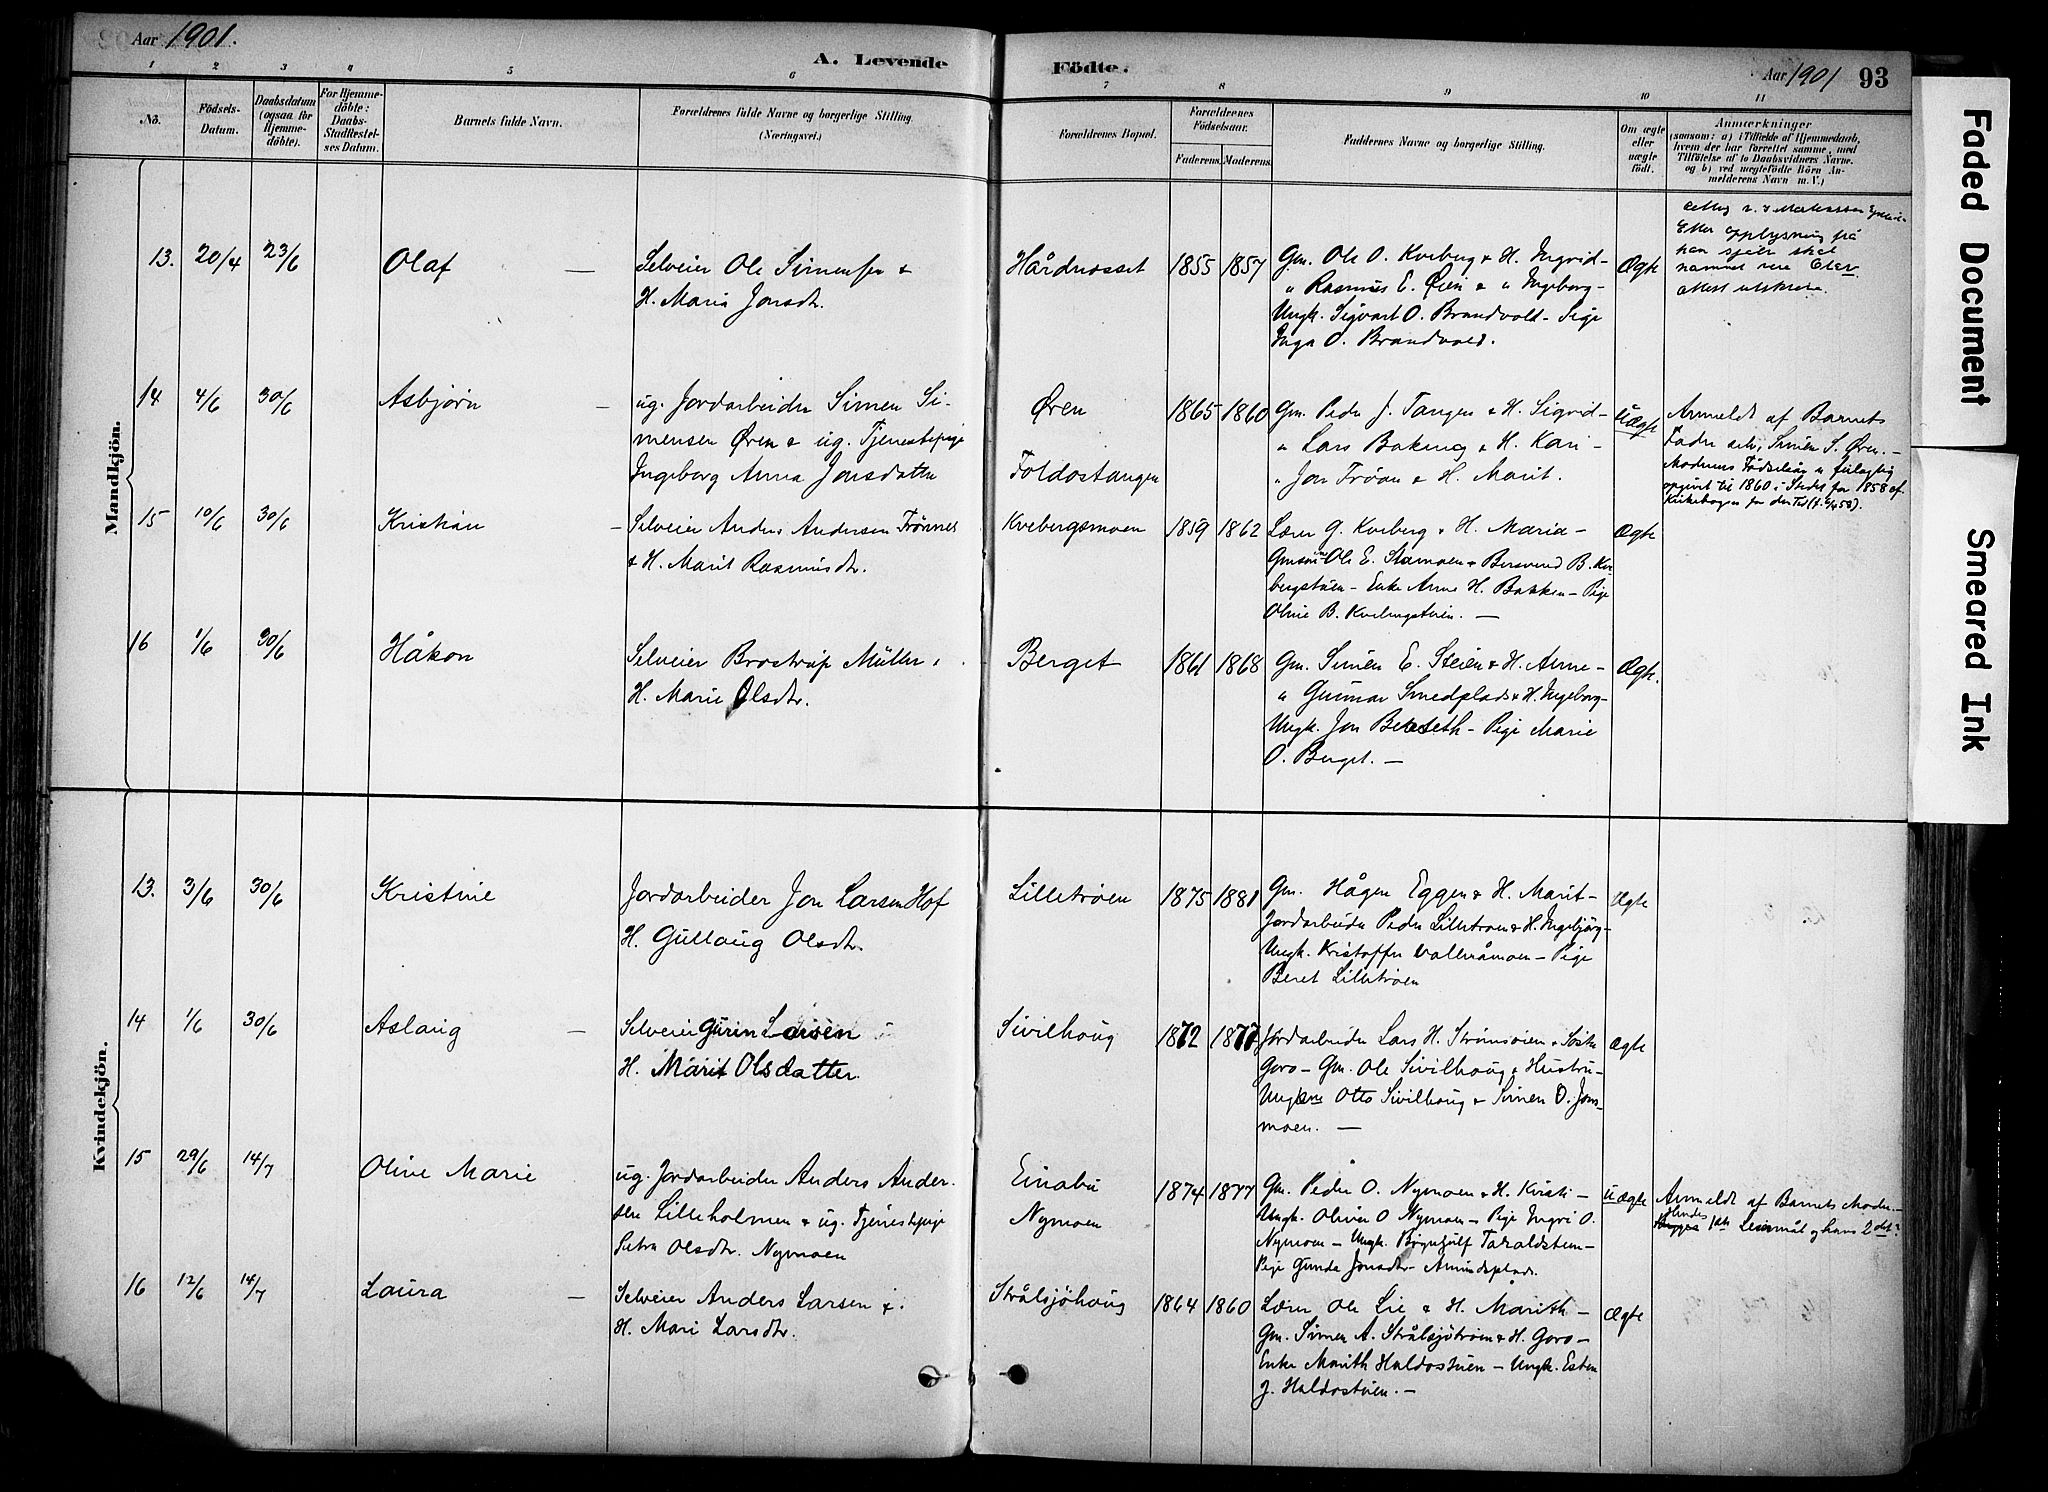 Aar 1901.
A. Levende Födte.
Aar 1901 93
1 2 3 4 5 6 7 8 9 10 11
No.
Födsels-Datum.
Daabsdatum (ogsaa for Hjemme-döbte).
For Hjemme-döbte: Daabs-Stadfæstel-ses Datum.
Barnets fulde Navn.
Forældrenes fulde Navne og borgerlige Stilling. (Næringsvei.)
Forældrenes Bopæl.
Forældrenes Födselsaar.
Faderens. Moderens.
Faddernes Navne og borgerlige Stilling.
Om ægte eller uægte födt.
Anmærkninger
(saasom: a) i Tilfælde af Hjemmedaab, hvem der har forrettet samme, med Tilföielse af to Daabsvidners Navne. og b) ved uægtefödte Börn An-melderens Navn m. V.)
Mandkjön.
13. 20/4 23/6 Olaf —
Selveier Ole Simensen &
H. Maria Jonsdtr.
Hårdnosset 1855 1857
Gm. Ole O. Kveberg & H. Ingrid-
" Rasmus E. Øien & " Ingeborg-
Ungk. Sigvart O. Brandvold - Pige
Inga O. Brandvold.
Ægte
Efter opplysning på
han sjelv skal
navnet være Olav.
attest utskreve.
14 4/6 30/6 Asbjørn —
ug. Jordarbeider Simen Si-
mensen Øren & ug. Tjenestepige
Ingeborg Anna Jonsdatter
Øren
Foldostangen
1865 1860
Gm. Peder J. Tangen & H. Sigrid-
" Lars Bakmo & H. Kari -
" Jon Trøan & H. Marit.
uægte
Anmeldt af Barnets
Fader selv, Simen S. Øren. -
Moderens Fødselsår er feilagtig
opgivet til 1860 i Stedet for 1858 af
Kirkebogen for den Tid
15 10/6 30/6 Kristian -
Selveier Anders Andersen Trønnes
& H. Marit Rasmusdtr.
Kvebergsmoen 1859 1862
Lærer G. Kveberg & H. Maria -
Gmænd Ole E. Stamoen & Bersvend B. Kve-
bergstuen - Enke Anne H. Bakken - Pige
Oline B. Kvebergstuen. —
Ægte
16 1/6 30/6 Håkon
Selveier Brostrup Müller &
H. Marie Olsdtr.
Berget 1861 1868
Gm. Simen E. Steien & H. Anne -
" Gunnar Smedplads & H. Ingeborg-
Ungk. Jon Bekseth - Pige Marie
O. Berget. —
Ægte.
Kvindekjön.
13. 3/6 30/6 Kristine
Jordarbeider Jon Larsen Hof
H. Gullaug Olsdtr.
Lilletrøen 1875 1881
Gm. Hågen Eggen & H. Marit -
Jordarbeider Peder Lilletrøen & H. Ingebjørg-
Ungk. Kristoffer Vollråmoen - Pige
Beret Lilletrøen
Ægte
14 1/6 30/6 Aslaug —
Selveier Gurin Larsen
H. Marit Olsdatter.
Sivilhaug 1872 1877
Jordarbeider Lars H. Strømsøien & Søster
Goro - Gm. Ole Sivilhaug & Hustru -
Ungkne Otto Sivilhaug & Simen O. Jons-
moen. —
Ægte
15 29/6 14/7 Oline Marie
ug. Jordarbeider Anders Ander-
sen Lilleholmen & ug. Tjenestepige
Petra Olsdtr. Nymoen
Einabu
Nymoen
1874 1877
Gm. Peder O. Nymoen & H. Kristi -
Ungk. Oliver O Nymoen - Pige Ingri O.
Nymoen - Ungk. Brynhulf Taraldstuen -
Pige Gunda Jonsdtr. Amundsplads.
uægte
Anmeldt af Barnets Moder. -
Hendes 1ste Leiermål og hans 2det
16 12/6 14/7 Laura —
Selveier Anders Larsen &
H. Mari Larsdtr.
Strålsjøhaug 1864 1860
Lærer Ole Lie & H. Marith -
Gm. Simen A. Strålsjøtrøen & H. Goro -
Enke Marith Haldostuen - Ungk. Esten
J. Haldostuen. -
Ægte
Faded Document
Smeared Ink